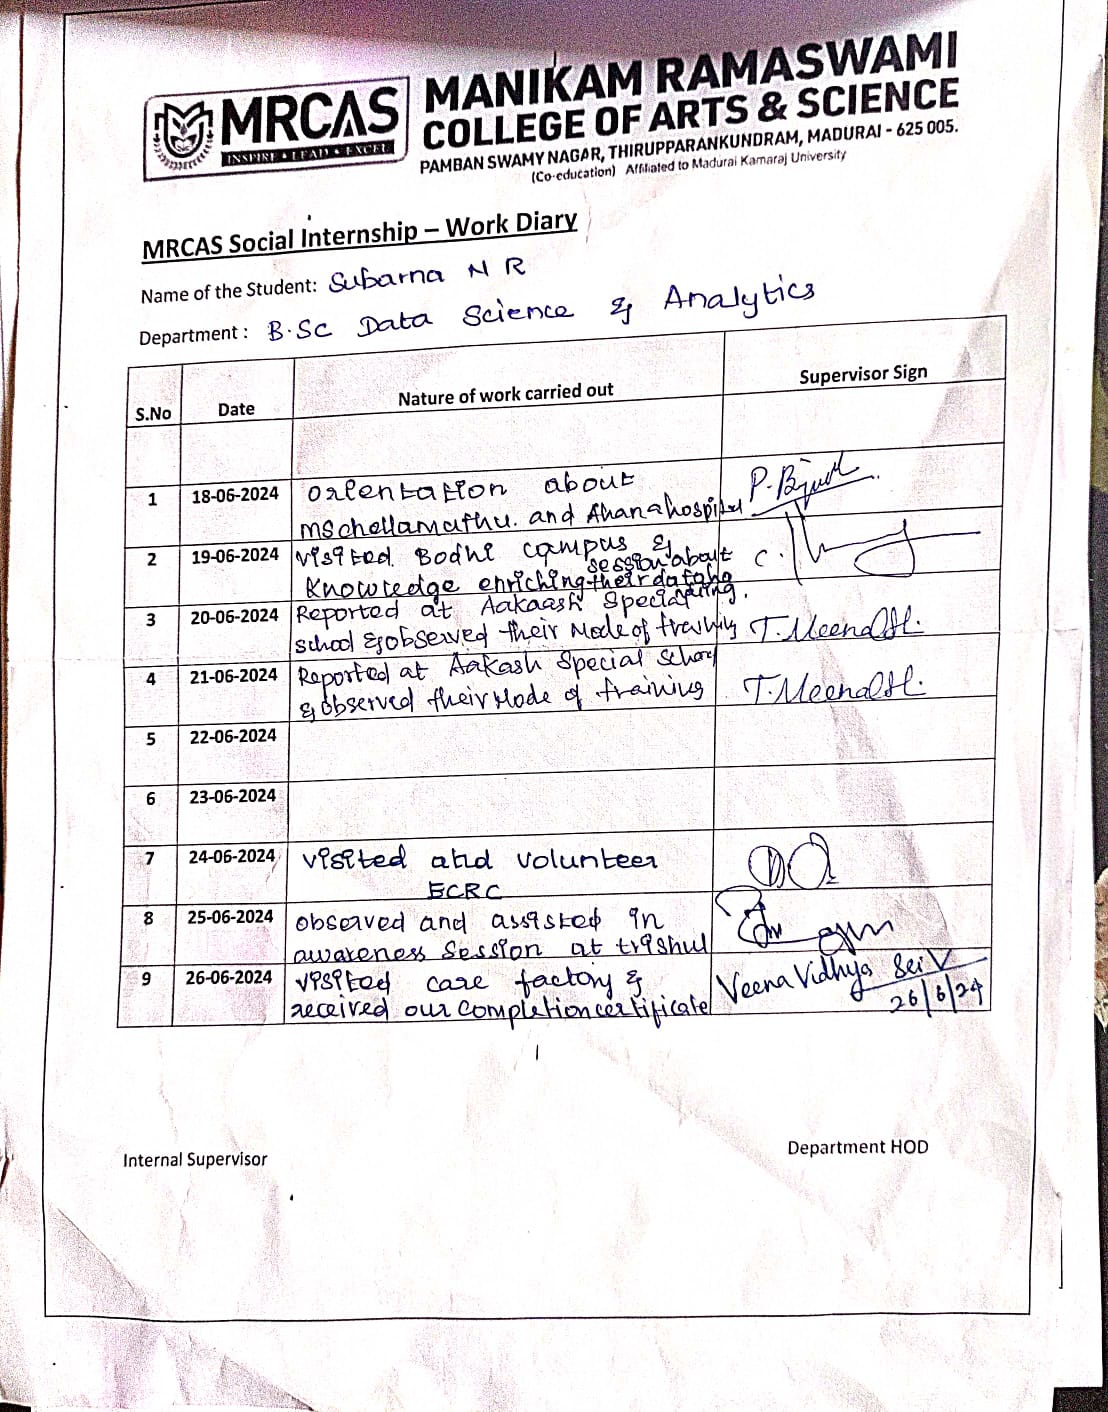 MRCAS
INSPIRE • LEAD • EXCEL
MANIKAM RAMASWAMI
COLLEGE OF ARTS & SCIENCE
PAMBAN SWAMY NAGAR, THIRUPPARANKUNDRAM, MADURAI - 625 005.
(Co-education) Affiliated to Madurai Kamaraj University
MRCAS Social Internship – Work Diary
Name of the Student: Subarna N R
Department : B.Sc Data Science & Analytics
S.No Date Nature of work carried out Supervisor Sign
1 18-06-2024 Orientation about
mschellamuthu. and Ahana hospital
2 19-06-2024 visited Bodhi campus &
session about
Knowledge enriching their
3 20-06-2024 Reported at Aakaash Special
school & observed their Mode of training T. Meenakshi.
4 21-06-2024 Reported at Aakash Special School
& observed their Mode of training T. Meenakshi.
5 22-06-2024
6 23-06-2024
7 24-06-2024 visited and volunteer
ECRC
8 25-06-2024 observed and assisted in
awareness session at trishul
9 26-06-2024 visited care factory &
received our completion certificate Veena Vidhya
26/6/24
Internal Supervisor Department HOD